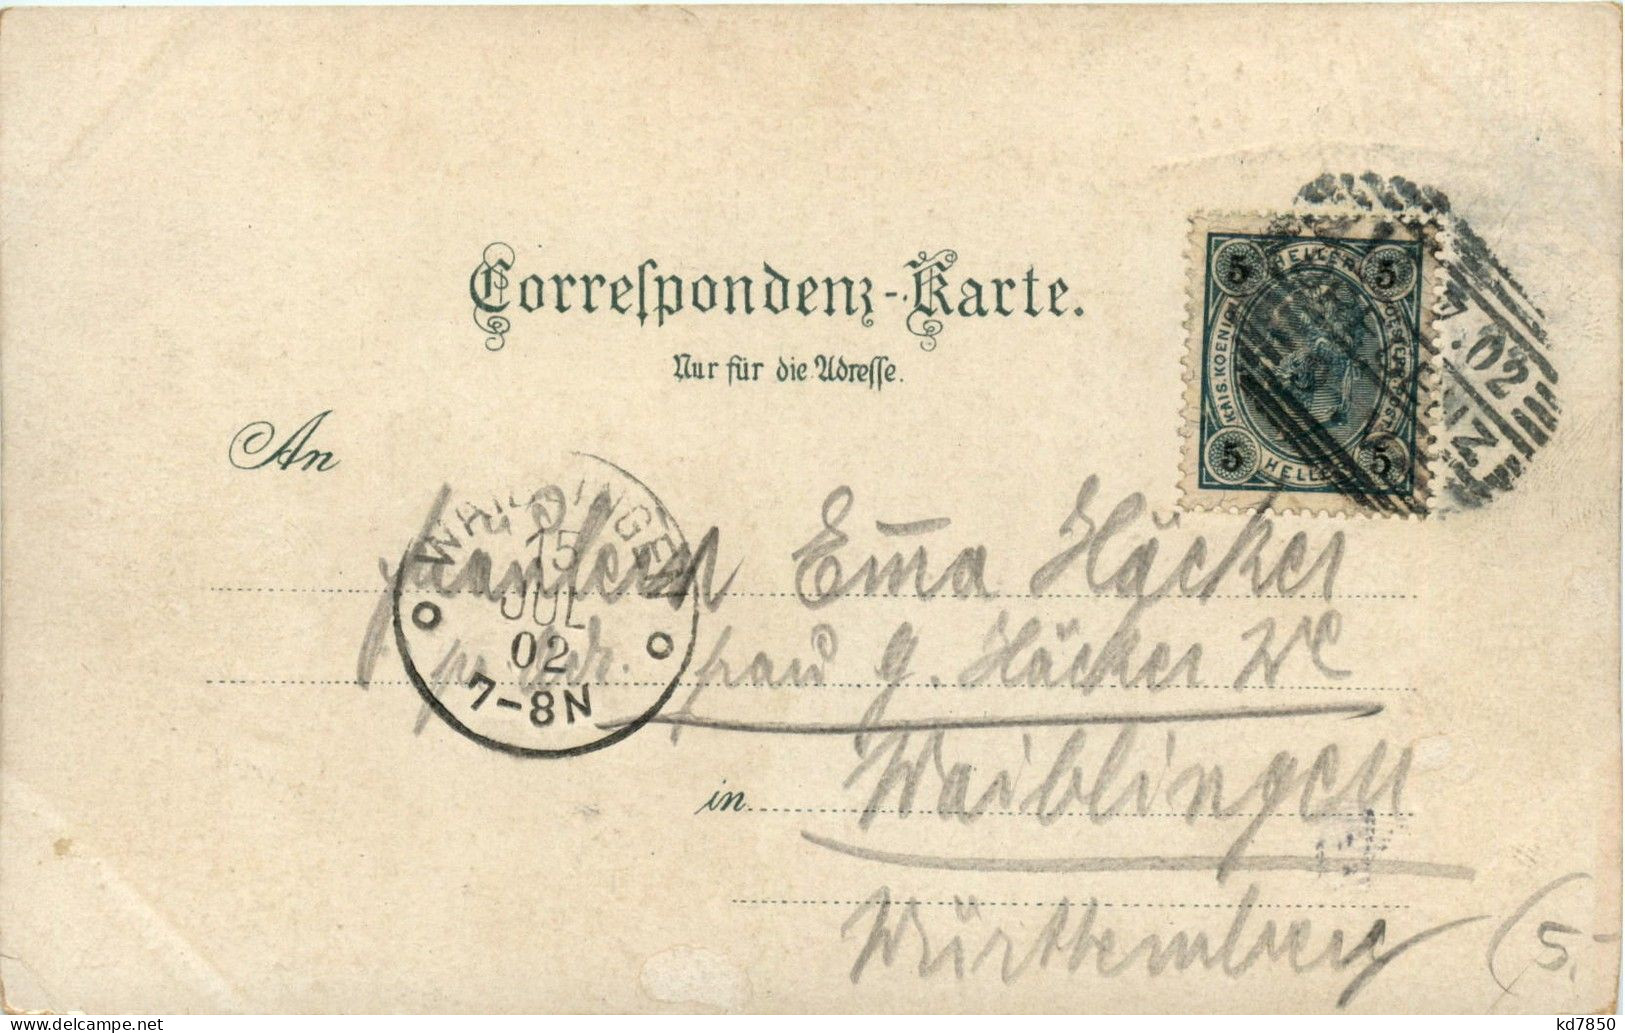 Correſpondenz-Karte.
Nur für die Adreſſe.
5 HELLER 5
KAIS. KOENIGL.
5 HELLER 5
02
An
WAIBLINGEN
15
JUL
02
7-8N
Fräulein Em̅a Häcker
p. Adr. Frau G. Häcker We
in Waiblingen
Württemberg
5.-
kd7850